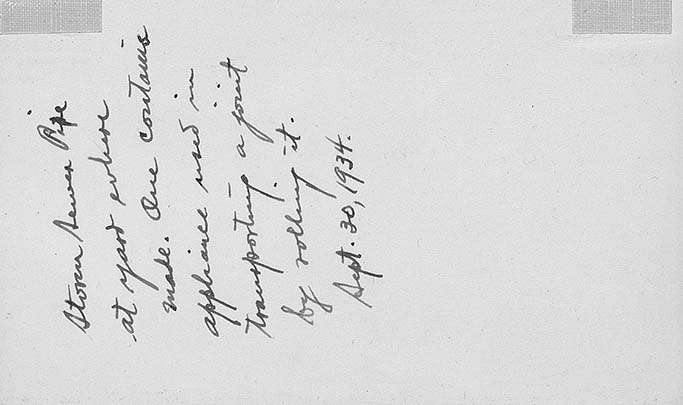 Storm Sewer Pipe
at yard where
made. One contains
appliance used in
transporting a joint
by rolling it.
Sept. 30, 1934.